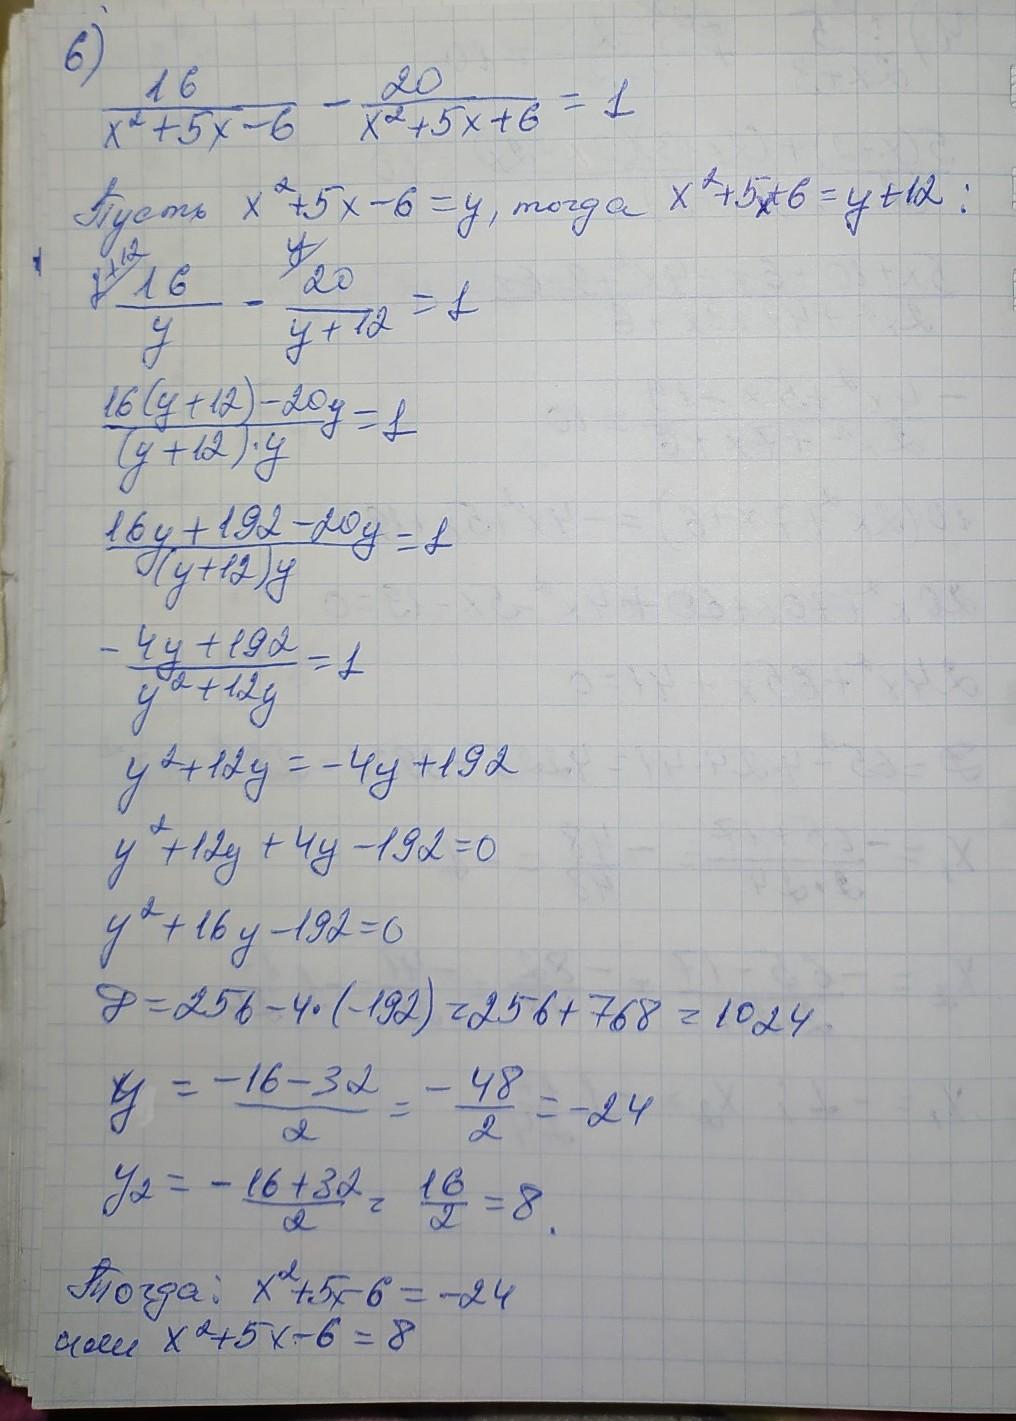 6)
16/(x²+5x-6) - 20/(x²+5x+6) = 1
Пусть x²+5x-6=y, тогда x²+5x+6=y+12:
y+12 y
16/y - 20/(y+12) = 1
(16(y+12)-20y)/((y+12)·y) = 1
(16y+192-20y)/((y+12)y) = 1
(-4y+192)/(y²+12y) = 1
y²+12y=-4y+192
y²+12y+4y-192=0
y²+16y-192=0
D=256-4·(-192)=256+768=1024.
y = (-16-32)/2 = -48/2 = -24
y₂ = (-16+32)/2 = 16/2 = 8.
Тогда: x²+5x-6=-24
или x²+5x-6=8